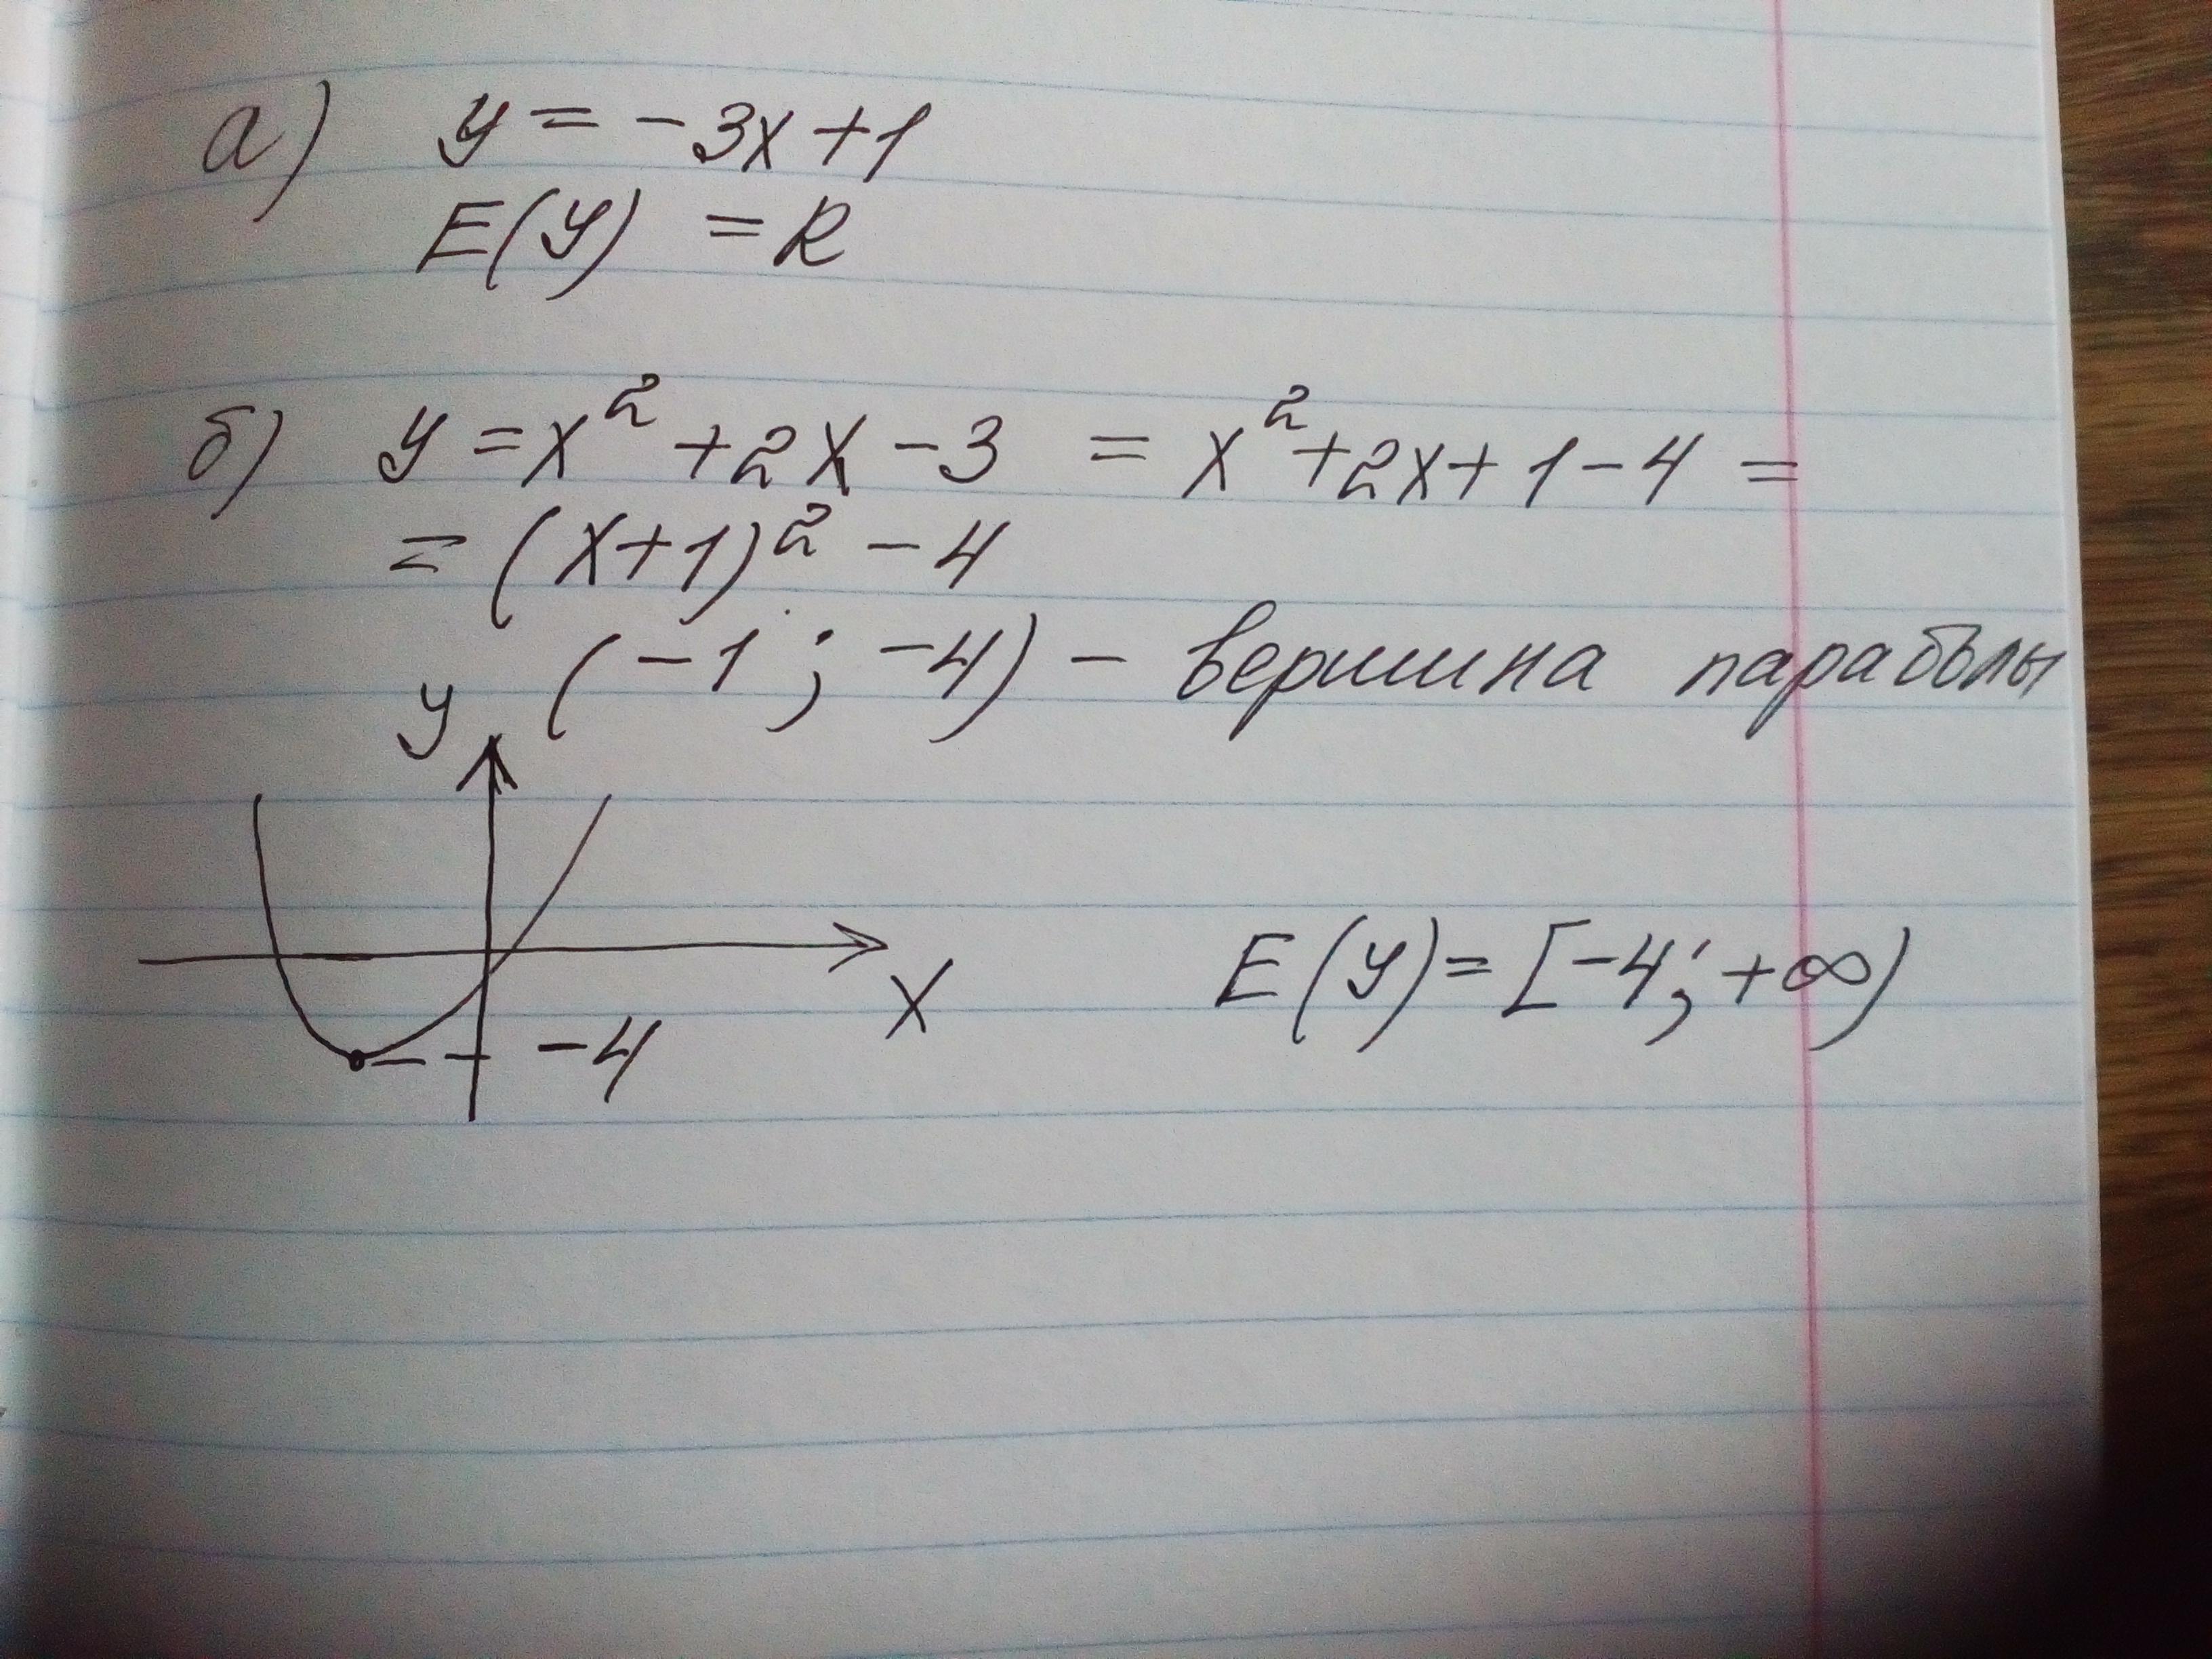 а) y = -3x+1
E(y) = R
б) y = x² + 2x - 3 = x² + 2x + 1 - 4 =
= (x+1)² - 4
(-1; -4) - вершина параболы
y
x
-4
E(y) = [-4; +∞)